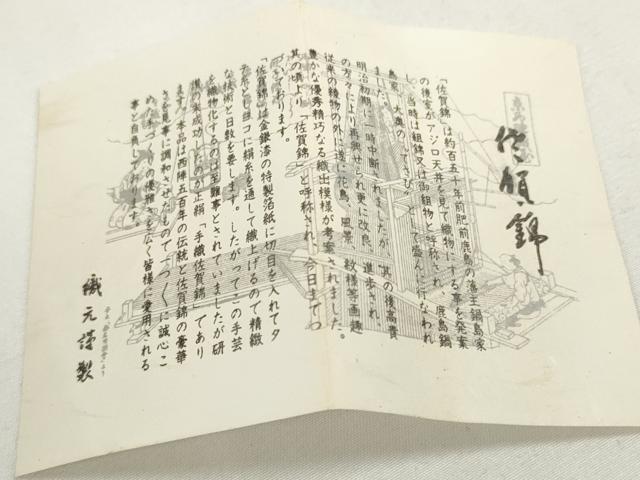 佐賀錦
「佐賀錦」は約百五十年前肥前鹿島の藩主鍋島家
の後室がアジロ天井を見て織物にする事を発案
し、当時は組錦又は御組物と呼称され、鹿島鍋
島家、大奥の「てさび」として盛んに行なわれ
ました。
明治初期に一時中断されましたが、其の後高貴
の方々により再興せられ更に改良、進歩され
従来の織物の外に遂に花鳥、風景、紋様等画趣
豊かな優秀精巧なる織出模様が考案されました。
其の頃より「佐賀錦」と呼称され、今日までつ
づいております。
「佐賀錦」は金銀漆の特製箔紙に切目を入れてタ
テ糸とし ヨコに絹糸を通して織上げるので精緻
な技術と日数を要します。したがってこの手芸
を織物化するのは至難事とされていましたが研
讃の末成功したのが正絹「手織佐賀錦」であり
ます。本品は西陣五百年の伝統と佐賀錦の豪華
さを見事に調和させたもので一つ一つに誠心こ
めた手づくりの優雅さを広く皆様に愛用される
事と自負しております。
織元謹製